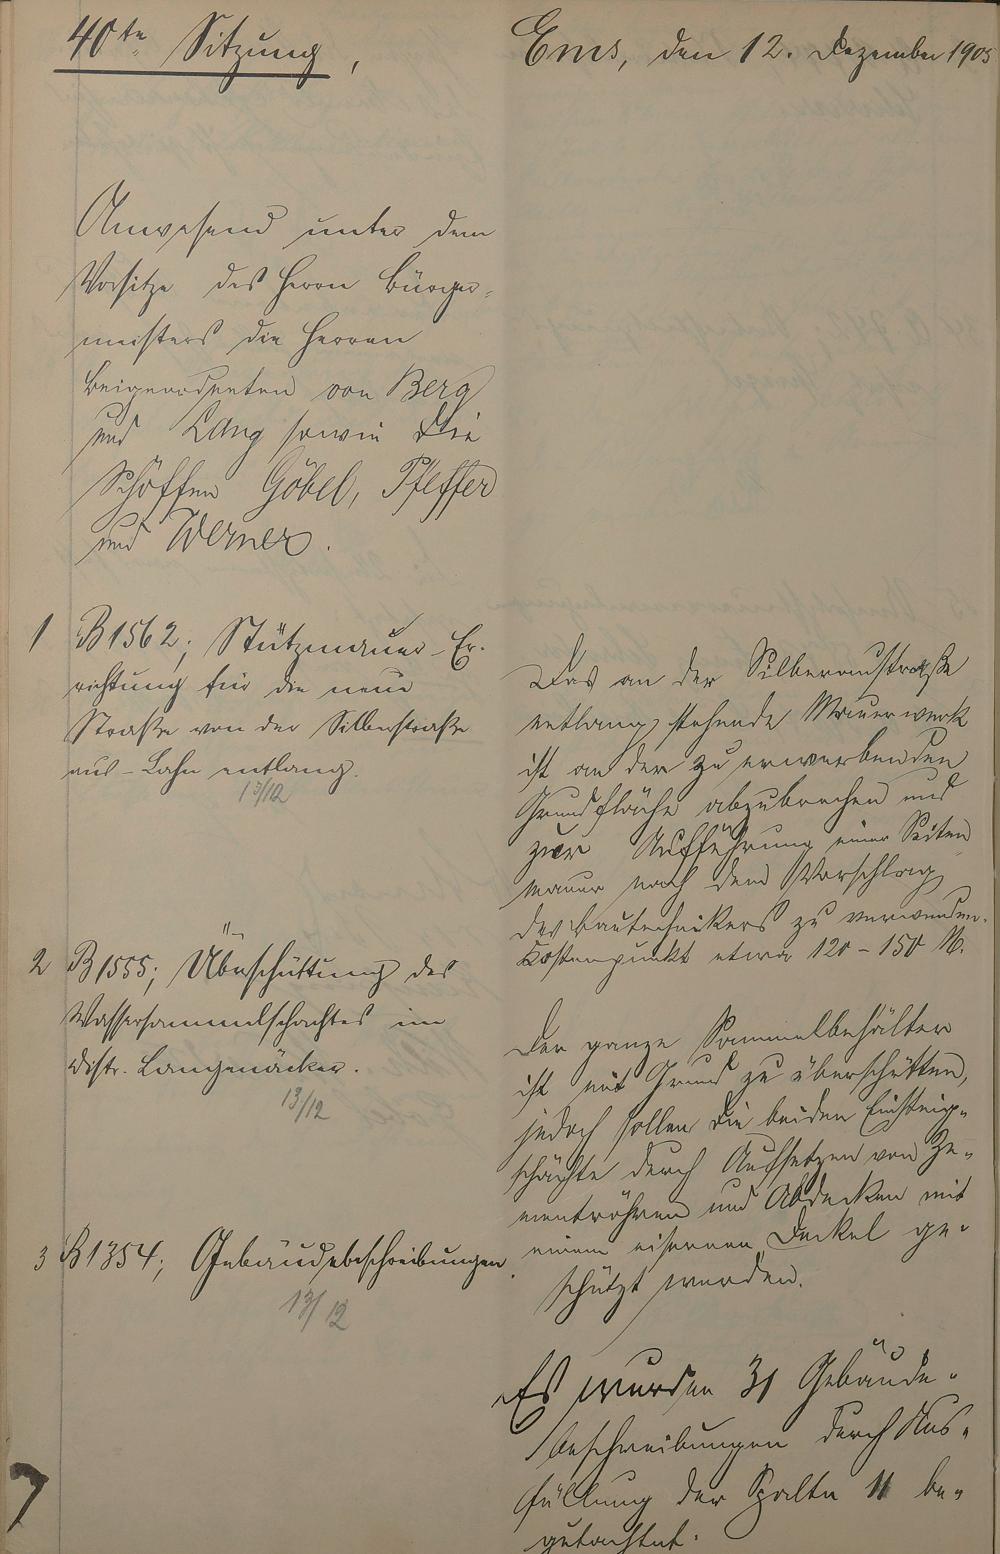 40te Sitzung,
Ems, den 12. Dezember 1905
Anwesend unter dem
Vorsitze des Herrn Bürger-
meisters die Herren
Beigeordneten von Berg
und Lang sowie die
Schöffen Göbel, Pfeffer
und Werner.
1 B 1562; Stützmauer-Er-
richtung für die neue
Straße von der Silberstraße
aus - Lahn entlang.
13/12
Das an der Silberaustraße
entlang stehende Mauerwerk
ist an der zu erwerbenden
Grundfläche abzubrechen und
zur Aufführung einer Seiten
mauer nach dem Vorschlag
des Bautechnikers zu verwenden.
Kostenpunkt etwa 120 - 150 M.
2 B 1555; Überschüttung des
Wassersammelschachtes im
Distr. Langenäcker.
13/12
Der ganze Sammelbehälter
ist mit Grund zu überschütten,
jedoch sollen die beiden Einsteig-
schächte durch Aufsetzen von Ze-
mentröhren und Abdecken mit
einem eisernen Deckel ge-
schützt werden.
3 B 1354; Gebäudebeschreibungen.
13/12
Es wurden 31 Gebäude-
beschreibungen durch Aus-
füllung der Spalte 11 be-
gutachtet.
7